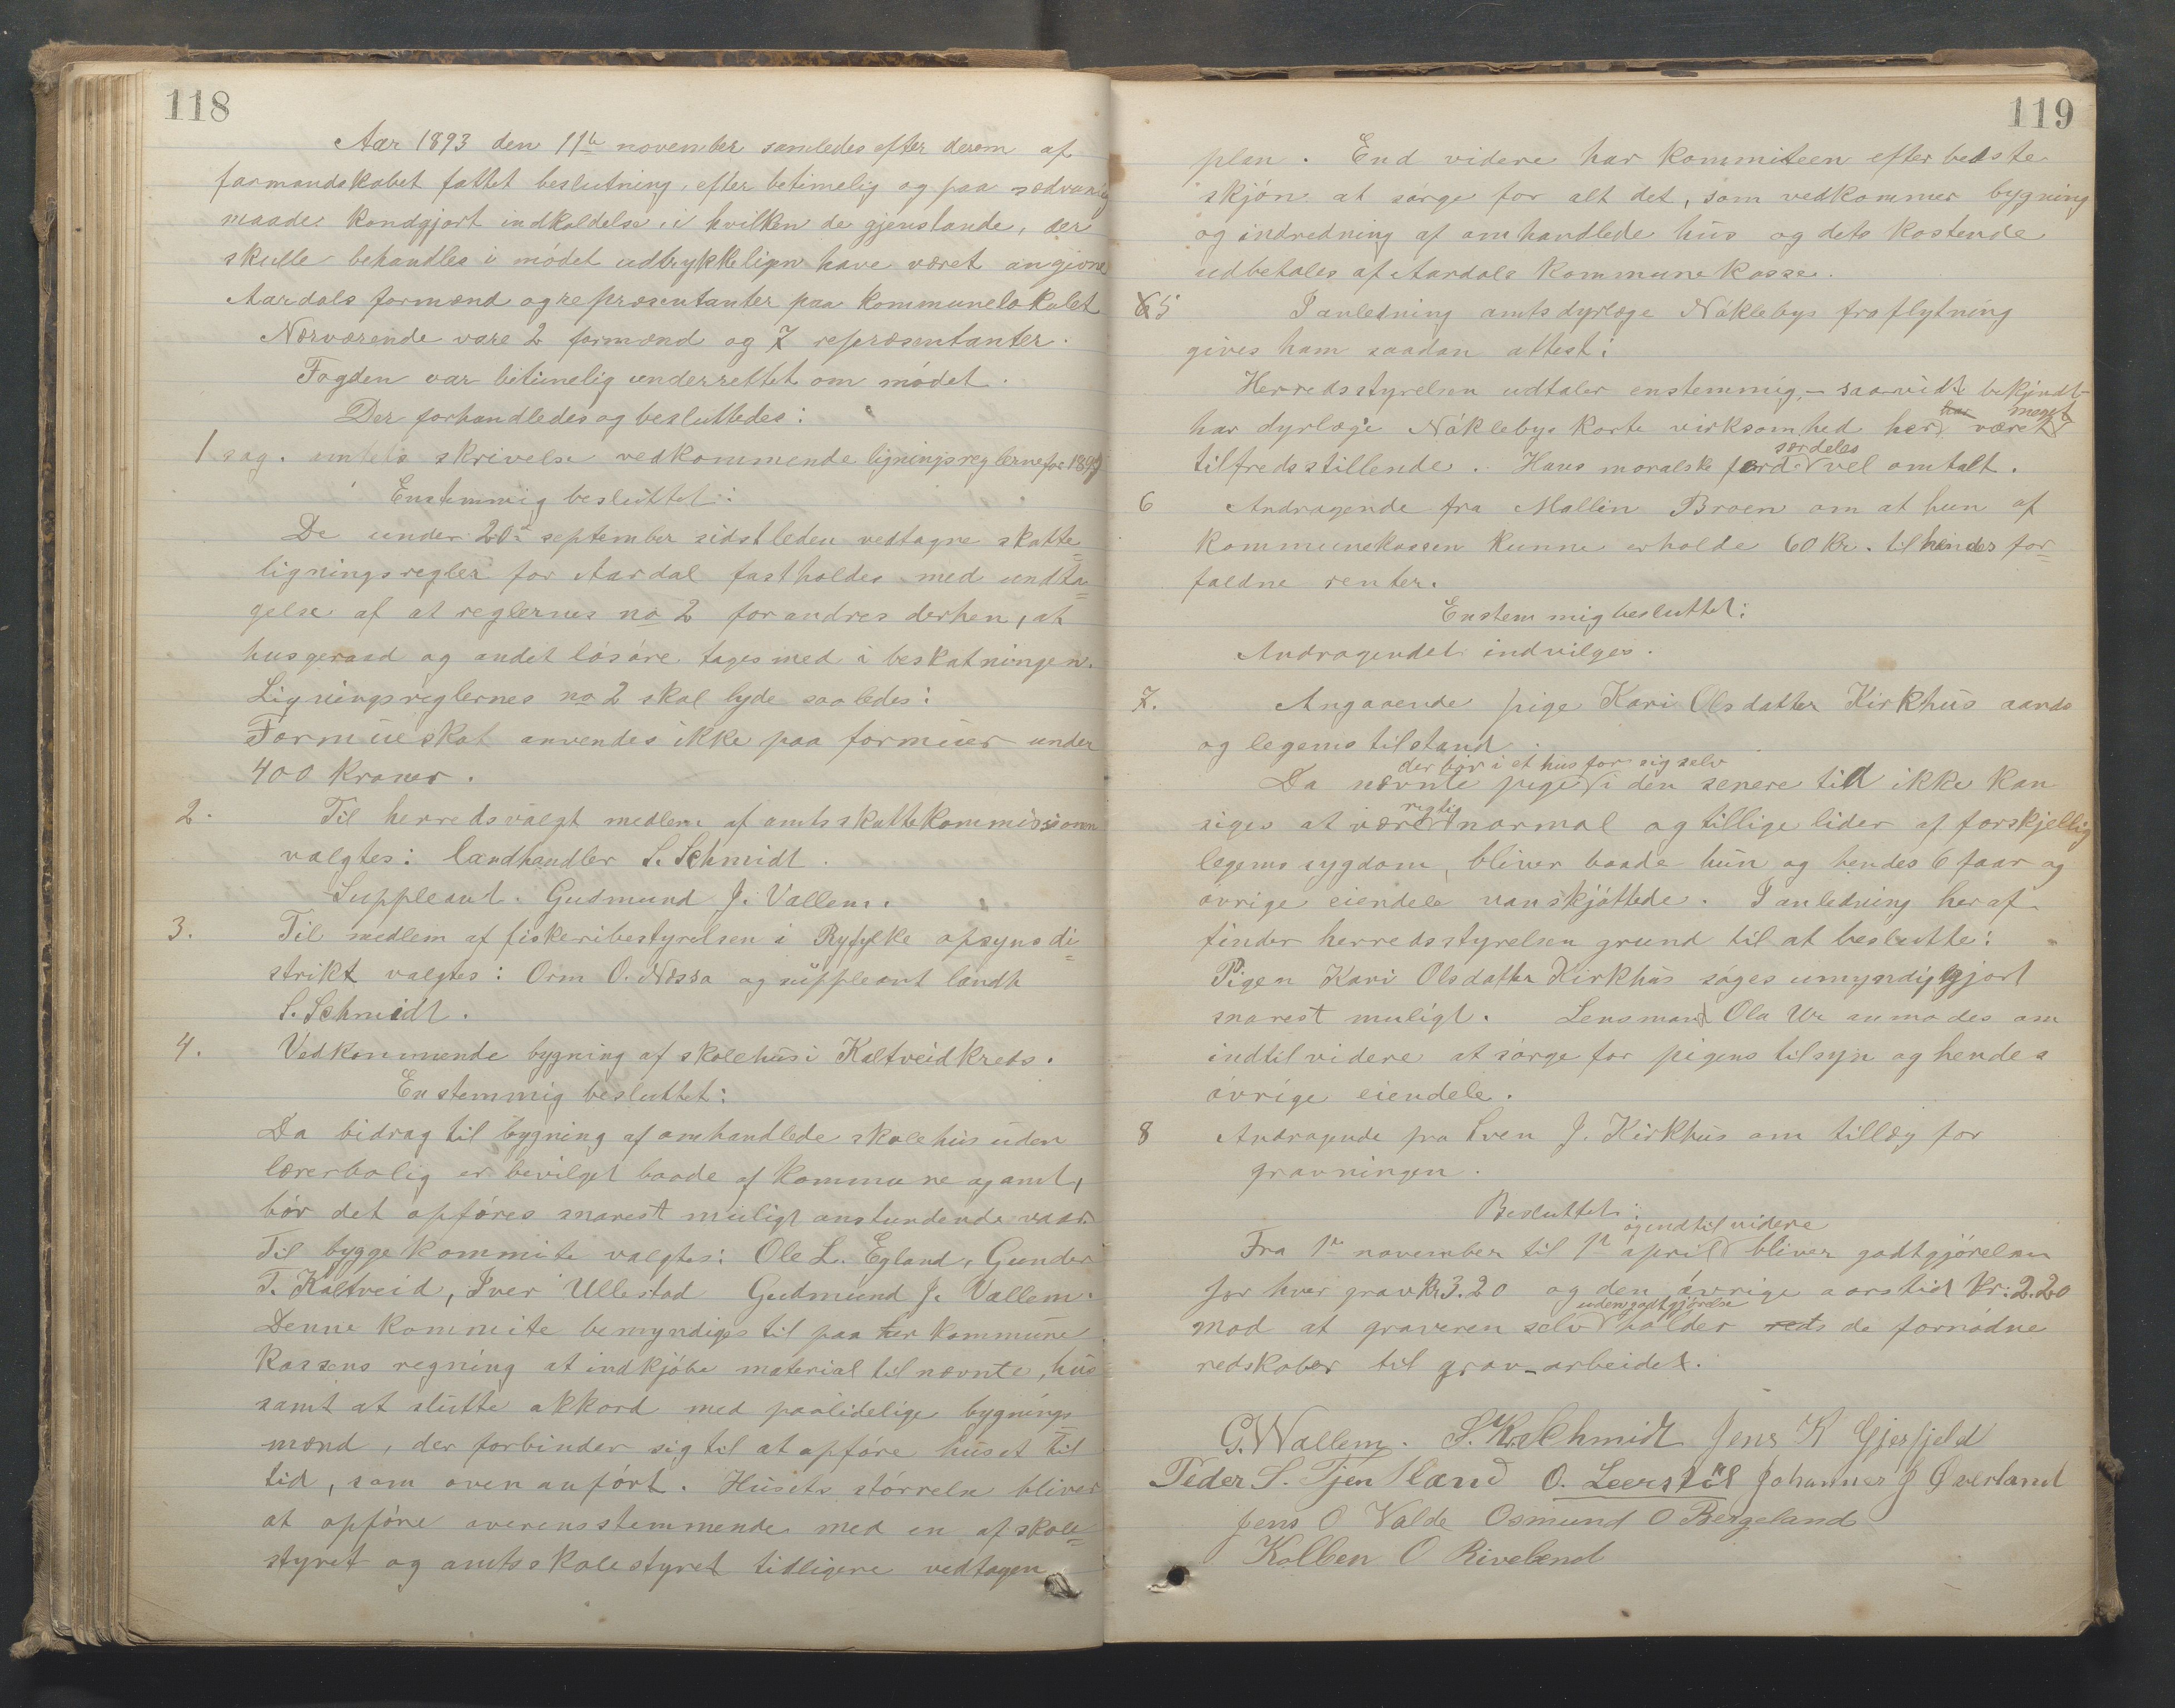 118
Aar 1893 den 11te november samledes efter derom af
formandskabet fattet beslutning, efter betimelig og paa sædvanlig
maade kundgjort indkaldelse, i hvilken de gjenstande, der
skulle behandles i mödet udtrykkeligen have været angivne
Aardals formænd og repræsentanter paa kommunelokalet
Nærværende vare 2 formænd og 7 repræsentanter.
Fogden var betimelig underrettet om mödet.
Der forhandledes og besluttedes:
1 sag. amtets skrivelse vedkommende ligningsreglerne for
Enstemmig besluttet:
De under 20de september sidstleden vedtagne skatte=
ligningsregler for Aardal fastholdes med undta=
gelse af at reglernes no 2 forandres derhen, at
husgeraad og andet lösöre tages med i beskatningen.
Ligningsreglernes no 2 skal lyde saaledes:
Formueskat anvendes ikke paa formuer under
400 kroner.
2. Til herredsvalgt medlem af amtsskattekommissionen
valgtes: landhandler S. Schmidt.
Suppleant. Gudmund J. Vallem.
3. Til medlem af fiskeribestyrelsen i Ryfylke opsynsdi=
strikt valgtes: Orm O. Nessa og suppleant landh
S. Schmidt.
4. Vedkommende bygning af skolehus i Kaltveid kreds.
Enstemmig besluttet:
Da bidrag til bygning af omhandlede skolehus uden
lærerbolig er bevilget baade af kommune og amt,
bör det opföres snarest muligt anstundende vaar.
Til byggekommite valgtes: Ole L. Egland, Gunder
T. Kaltveid, Iver Ullestad Gudmund J. Vallem.
Denne kommite bemyndiges til paa her kommune
kassens regning at indkjöbe material til nævnte hus
samt at slutte akkord med paalidelige bygnings
mænd, der forbinder sig til at opföre huset til
tid, som oven anfört. Husets störrelse bliver
at opföre overensstemmende med en af skole=
styret og amtsskolestyret tidligere vedtagen
119
plan. End videre har kommiteen efter bedste
skjön at sörge for alt det, som vedkommer bygning
og indredning af omhandlede hus og dets kostende
udbetales af Aardals kommunekasse.
5 I anledning amtsdyrlæge Nöklebys fraflytning
gives ham saadan attest:
Herredsstyrelsen udtaler enstemmig, - saavidt bekjendt -
har dyrlæge Nöklebys korte virksomhed her været meget
tilfredsstillende. Hans moralske færd særdeles vel omtalt.
6 Andragende fra Mallin Broen om at hun af
kommunekassen kunne erholde 60 Kr. til hendes for=
faldne renter.
Enstemmig besluttet:
Andragendet indvilges.
7. Angaaende pige Kari Olsdatter Kirkhus aands
og legems tilstand.
der bor i et hus for sig selv
Da nævnte pige i den senere tid ikke kan
siges at være rigtig normal og tillige lider af forskjellig
legems sygdom, bliver baade hun og hendes 6 faar og
övrige eiendele vanskjöttede. I anledning heraf
finder herredsstyrelsen grund til at beslutte:
Pigen Kari Olsdatter Kirkhus söges umyndiggjort
snarest muligt. Lensmand Ola Ur anmodes om
indtil videre at sörge for pigens tilsyn og hendes
övrige eiendele.
8 Andragende fra Sven J. Kirkhus om tillæg for
gravningen.
Besluttet:
og indtil videre
Fra 1te november til 1te april bliver godtgjörelsen
for hver grav Kr 3.20 og den övrige aarstid kr: 2.20
uden godtgjörelse
mod at graveren selv holder reds de fornödne
redskaber til grav-arbeidet.
G. Wallem. S. Kr. Schmidt Jens K Gjesfjeld
Peder S. Tjentland O. Leerstöl Johannes J Øverland
Jens O Valde Osmund O Bergeland
Kolben O Riveland